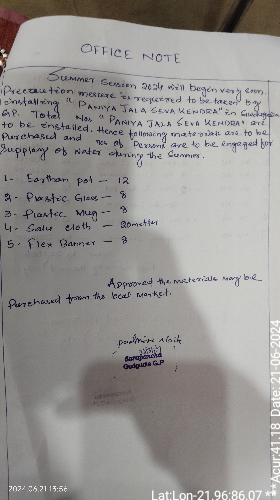 OFFICE NOTE
Summer Session 2024 will begin very soon.
Precaution mesure is requested to be taken by
installing "PANIYA JALA SEVA KENDRA" in
G.P. Total Nos "PANIYA JALA SEVA KENDRA" are
to be installed. Hence following materials are to be
Purchased and nos of Persons are to be engaged for
Supplying of water during the Summer.
1- Earthan pot - 12
2- Plastic Glass - 8
3- Plastic Mug - 8
4- Salu cloth - 20 metter
5- Flex Banner - 8
Approved the materials may be
Purchased from the local market.
Sarapancha
Gudguda G.P
2024.06.21 13:56
Lat:Lon-21.96:86.07
Acur:41.18 Date: 21-06-2024